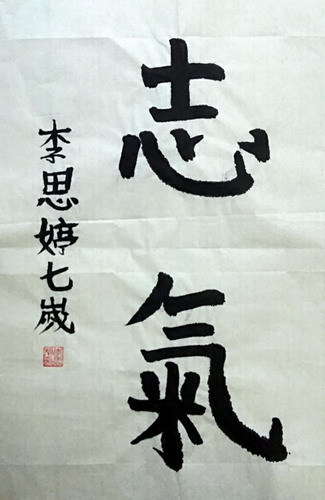 志氣
李思婷七歲